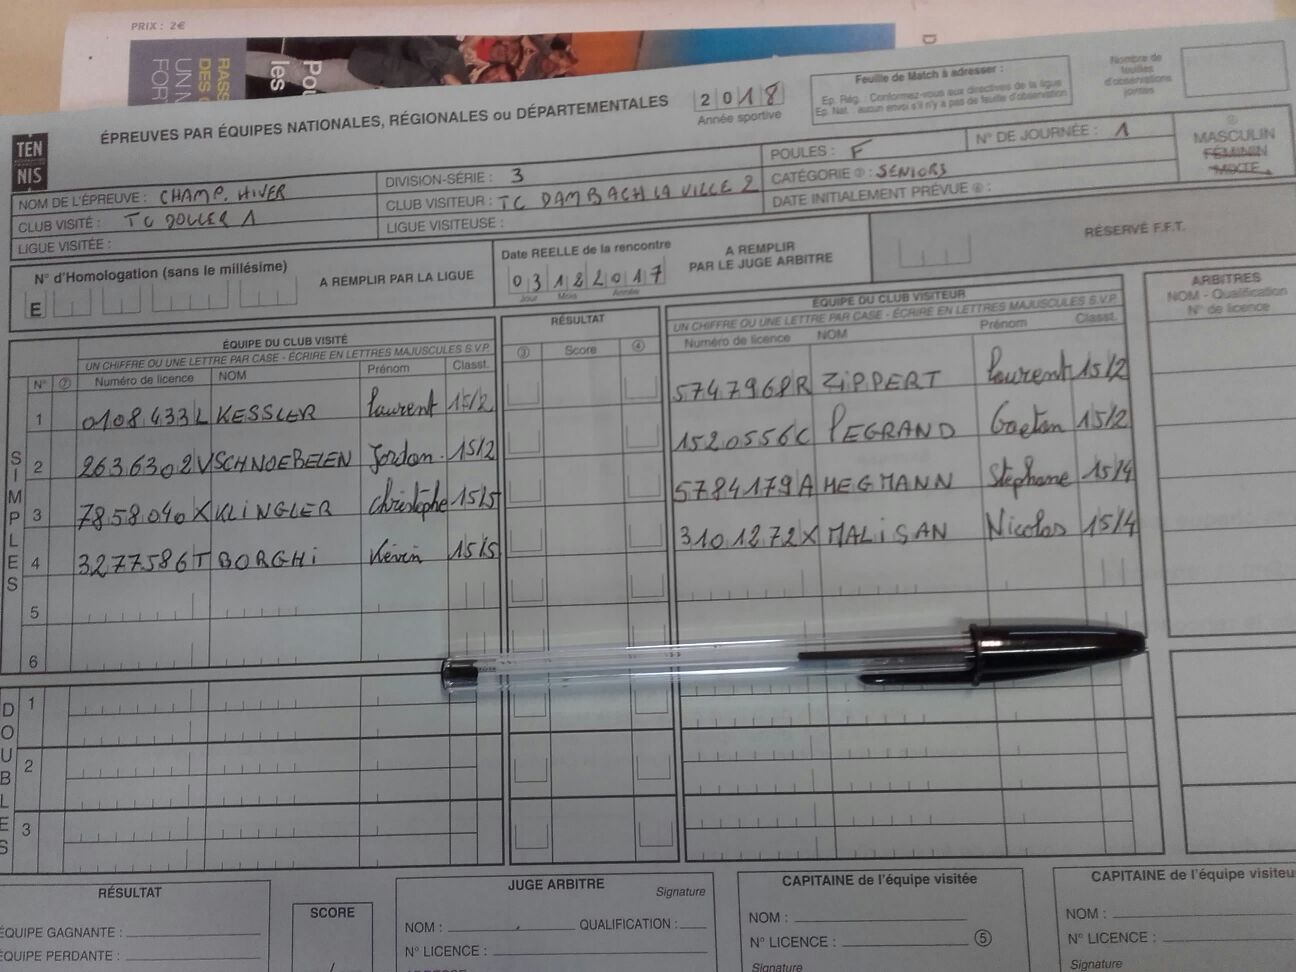 PRIX : 2€
RASS
DES
UN N
FOR
Pou
les
D
TEN
NIS
ÉPREUVES PAR ÉQUIPES NATIONALES, RÉGIONALES ou DÉPARTEMENTALES
2018
Année sportive
Feuille de Match à adresser :
Ep. Rég. : Conformez-vous aux directives de la ligue
Ep. Nat. : aucun envoi s'il n'y a pas de feuille d'observation
Nombre de
feuilles
d'observations
jointes
NOM DE L'ÉPREUVE : CHAMP. HIVER
DIVISION-SÉRIE : 3
POULES : F
N° DE JOURNÉE : 1
MASCULIN
FÉMININ
MIXTE
CLUB VISITÉ : TC DOLLER 1
CLUB VISITEUR : TC DAMBACH LA VILLE 2
CATÉGORIE ① : SENIORS
LIGUE VISITÉE :
LIGUE VISITEUSE :
DATE INITIALEMENT PRÉVUE :
N° d'Homologation (sans le millésime)
E
A REMPLIR PAR LA LIGUE
Date REELLE de la rencontre
03122017
Jour Mois Année
A REMPLIR
PAR LE JUGE ARBITRE
RÉSERVÉ F.F.T.
ÉQUIPE DU CLUB VISITÉ
UN CHIFFRE OU UNE LETTRE PAR CASE - ÉCRIRE EN LETTRES MAJUSCULES S.V.P.
N° ② Numéro de licence NOM Prénom Classt.
RÉSULTAT
③ Score ④
ÉQUIPE DU CLUB VISITEUR
UN CHIFFRE OU UNE LETTRE PAR CASE - ÉCRIRE EN LETTRES MAJUSCULES S.V.P.
Numéro de licence NOM Prénom Classt.
ARBITRES
NOM - Qualification
N° de licence
SIMPLES
1 0108433L KESSLER Laurent 15/2
5747968R ZIPPERT Laurent 15/2
2 2636302V SCHNOEBELEN Jordan 15/2
1520556C PEGRAND Gaetan 15/2
3 7858040X KLINGLER Christophe 15/5
5784179A HEGMANN Stéphane 15/4
4 3277586T BORGHI Kévin 15/5
3101272X MALISAN Nicolas 15/4
5
6
DOUBLES
1
2
3
RÉSULTAT
ÉQUIPE GAGNANTE :
ÉQUIPE PERDANTE :
SCORE
/
JUGE ARBITRE
Signature
NOM : QUALIFICATION :
N° LICENCE :
CAPITAINE de l'équipe visitée
NOM :
N° LICENCE : ⑤
Signature
CAPITAINE de l'équipe visiteu
NOM :
N° LICENCE :
Signature